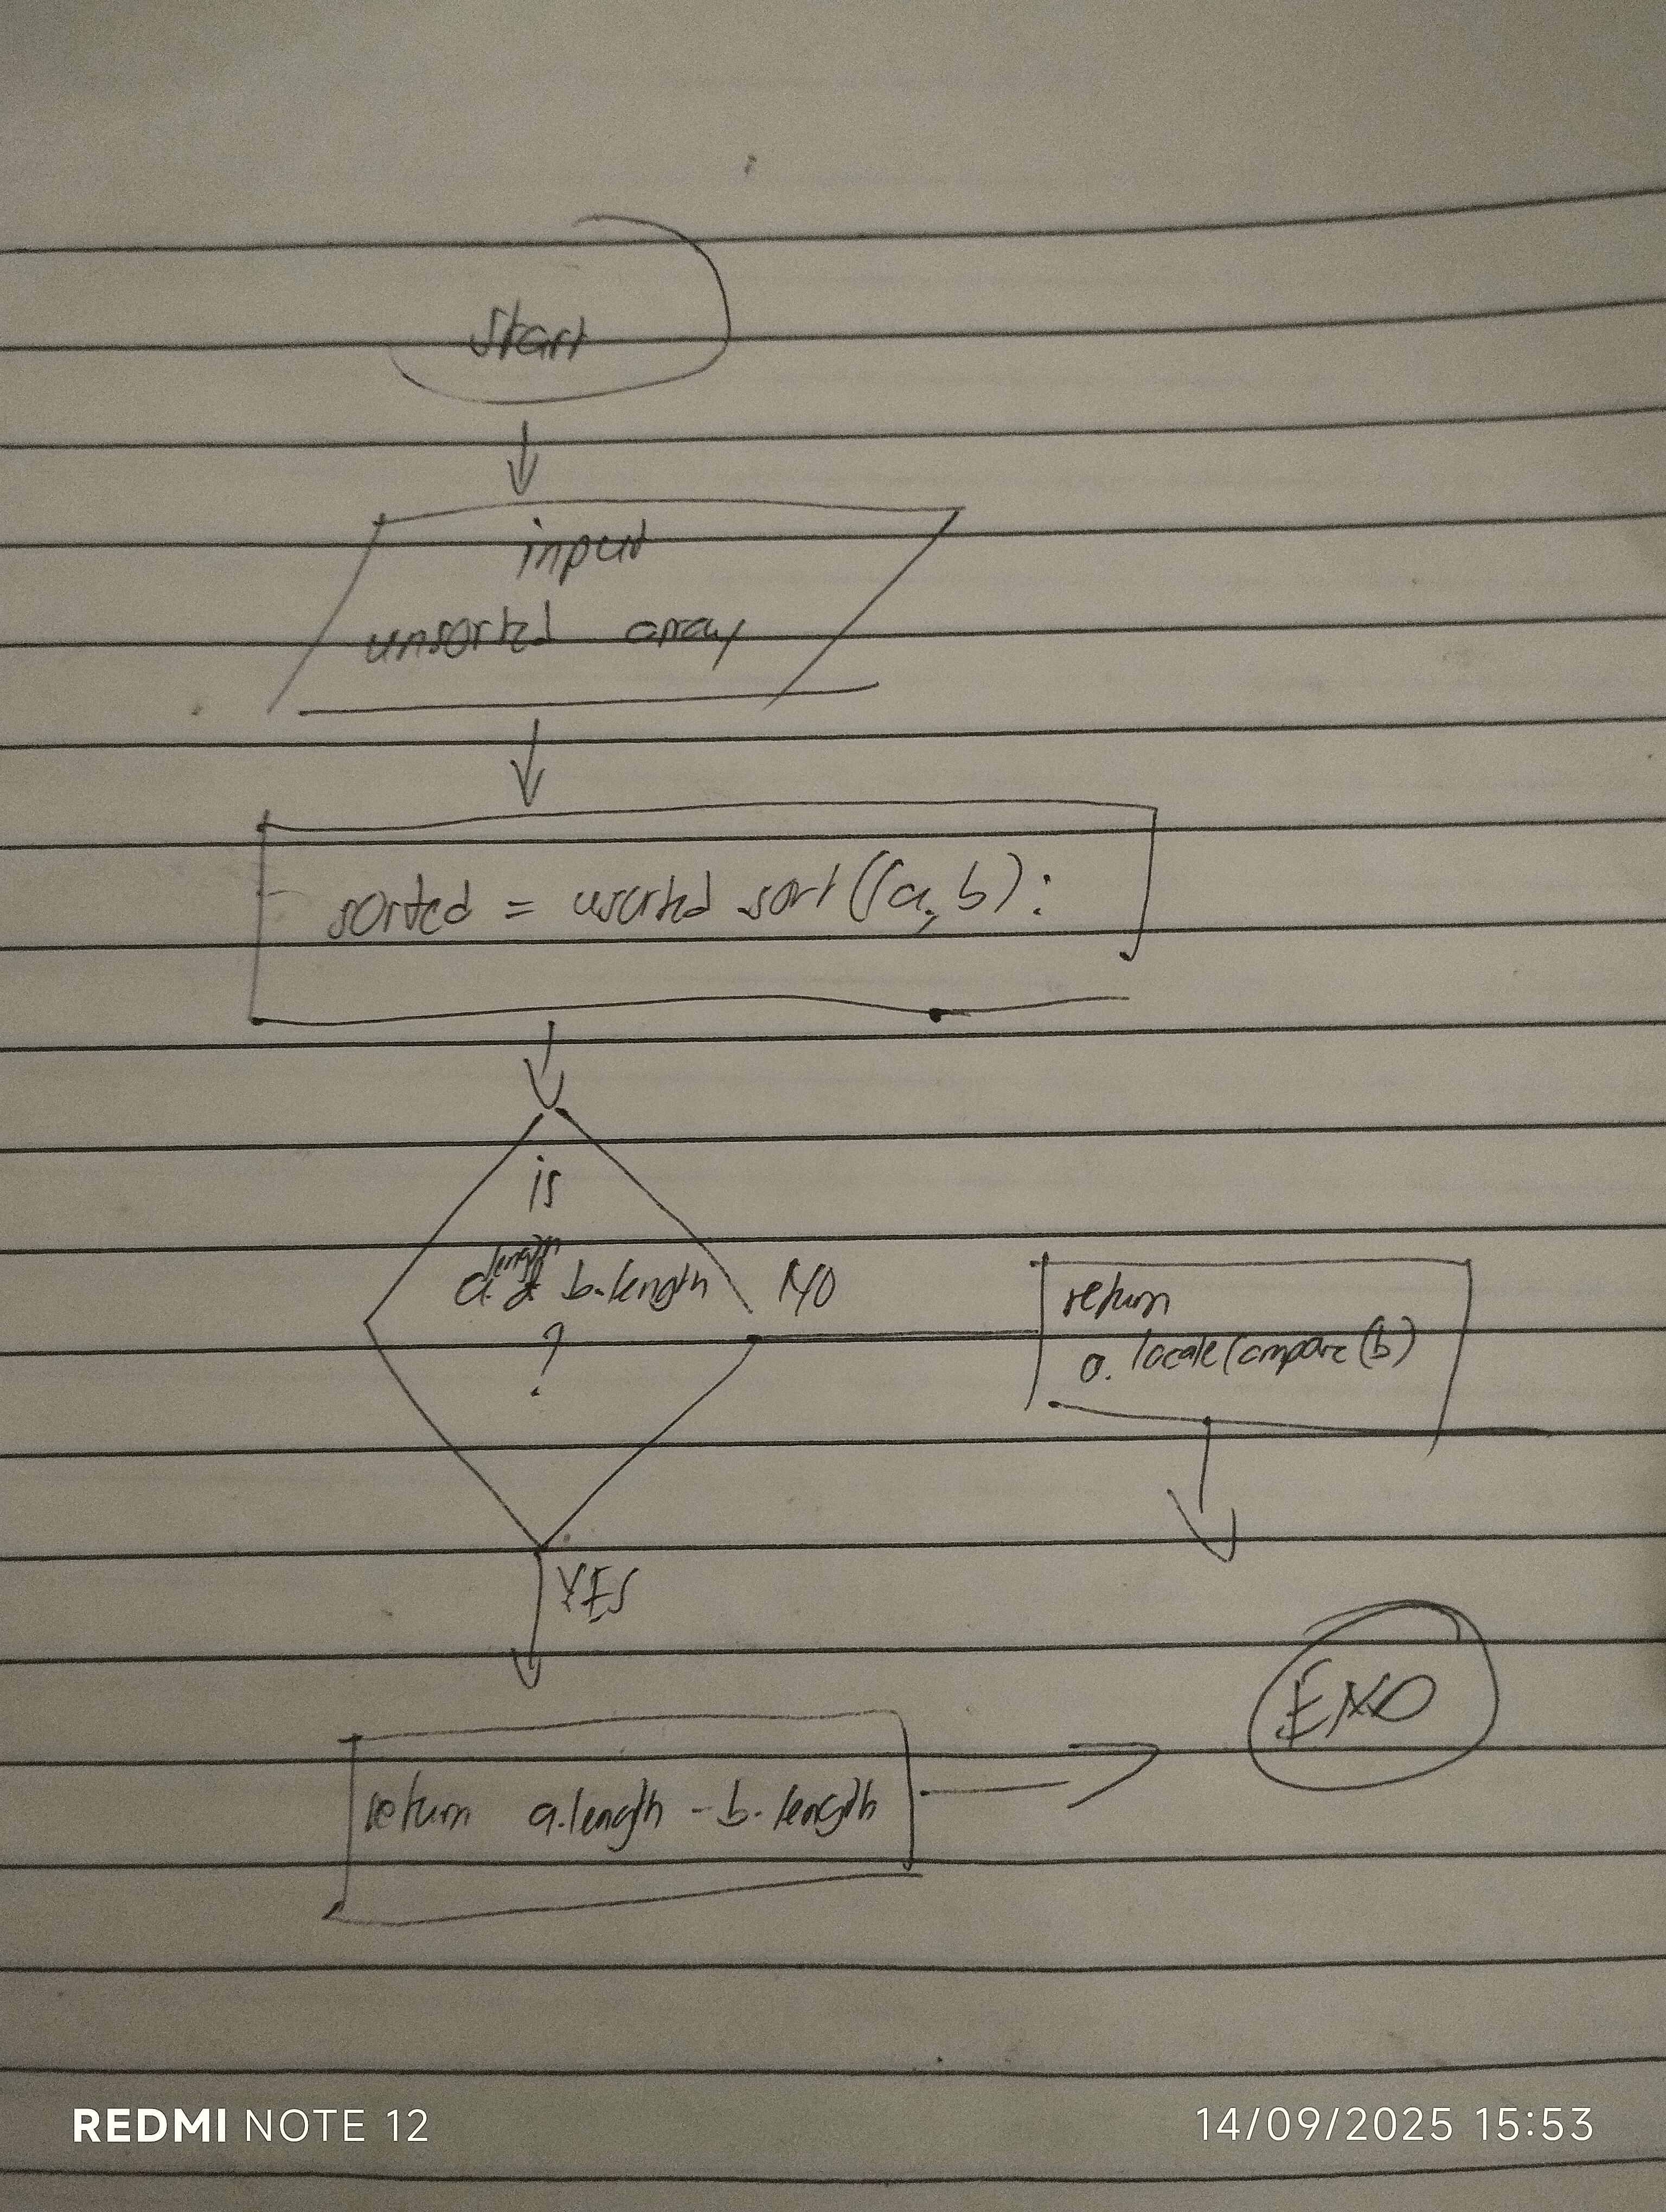 start
input
unsorted array
sorted = unsorted sort((a, b):
is
length
a. b.length
?
NO
return
a. localeCompare(b)
YES
return a.length - b.length
END
REDMI NOTE 12
14/09/2025 15:53